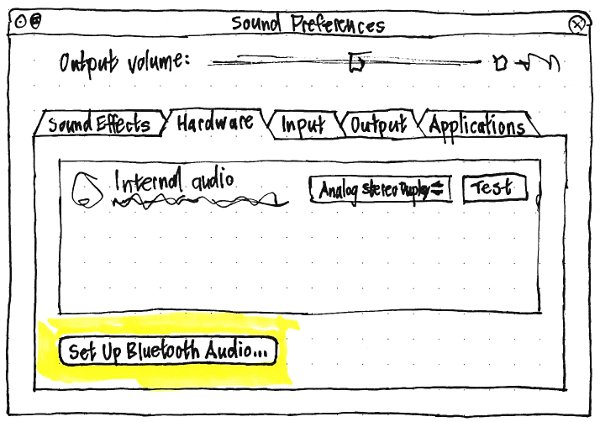 Sound Preferences
Output volume:
Sound Effects Hardware Input Output Applications
Internal audio Analog Stereo Duplex Test
Set Up Bluetooth Audio...